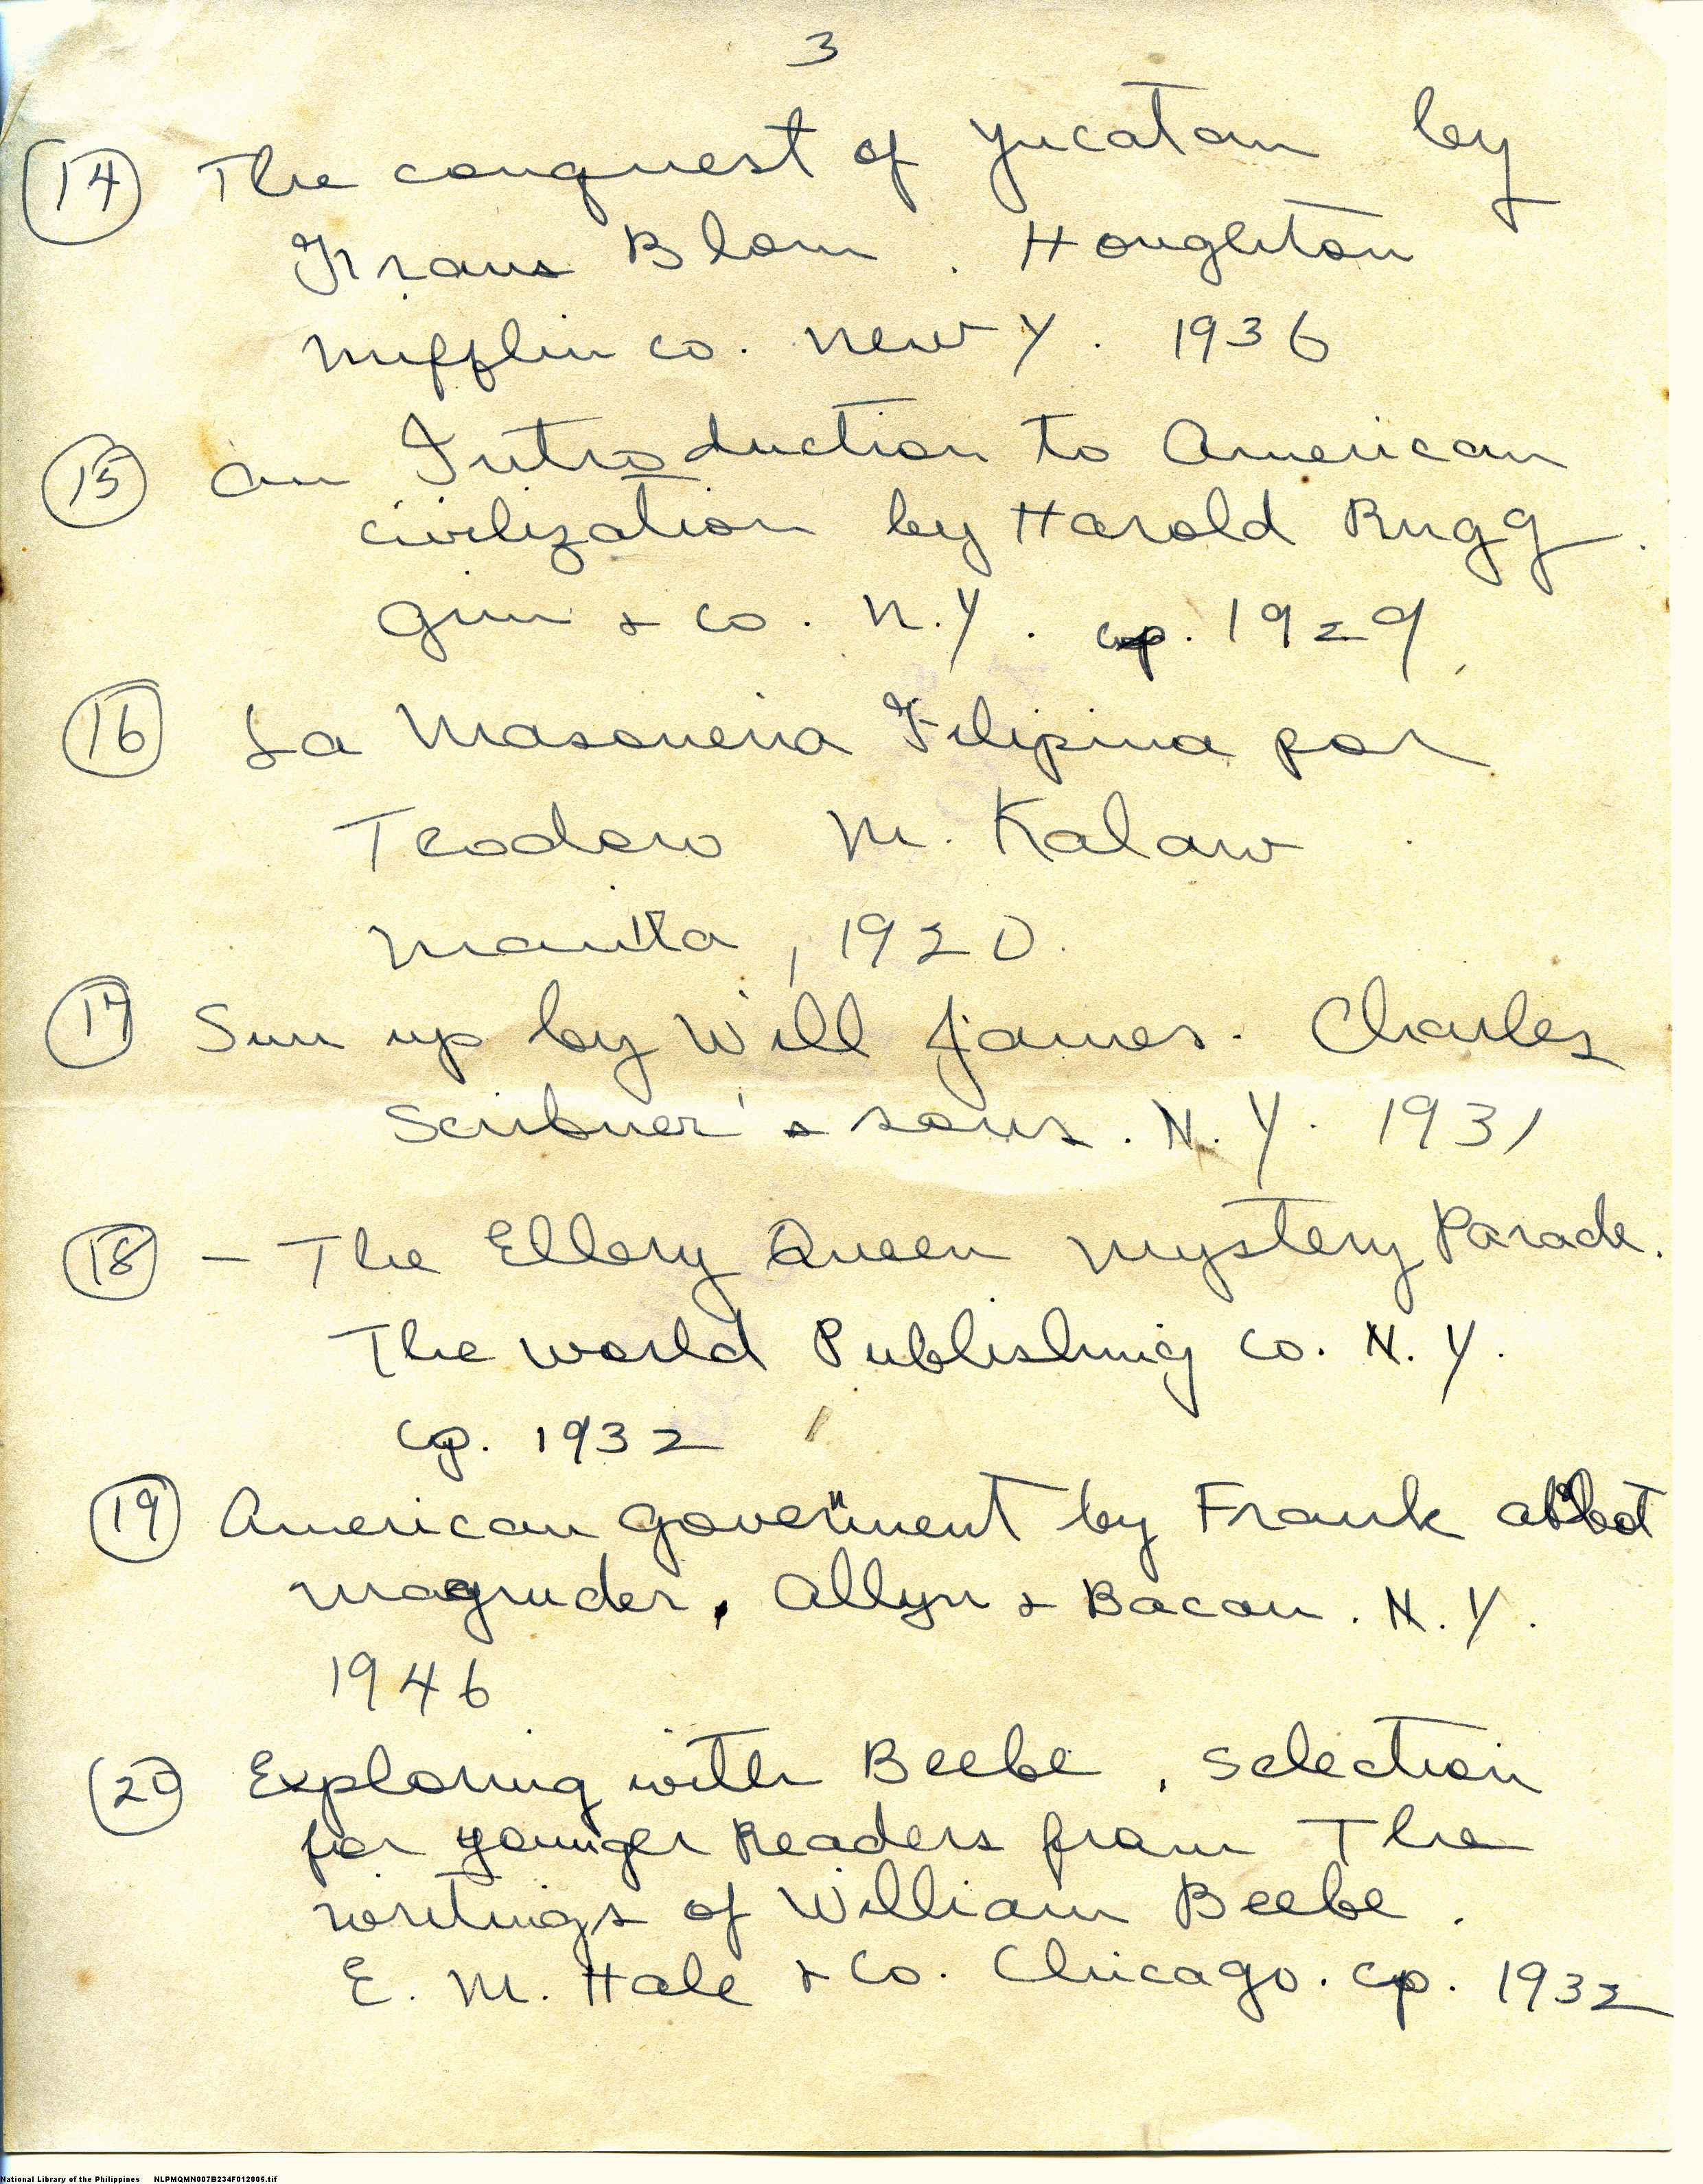 3
14 The conquest of Yucatan by
Frans Blom. Houghton
Mifflin Co. New Y. 1936
15 An Introduction to American
civilization by Harold Rugg.
Ginn & Co. N.Y. cp. 1929
16 La Masoneria Filipina por
Teodoro M. Kalaw
Manila, 1920.
17 Sun up by Will James. Charles
Scribner's sons. N.Y. 1931
18 — The Ellery Queen Mystery Parade.
The World Publishing Co. N.Y.
cp. 1932
19 American Government by Frank Abbot
Magruder, Allyn & Bacon. N.Y.
1946
20 Exploring with Beebe, selection
for younger Readers from The
writings of William Beebe.
E. M. Hale & Co. Chicago. cp. 1932
National Library of the Philippines NLPMQMN007B234F012005.tif